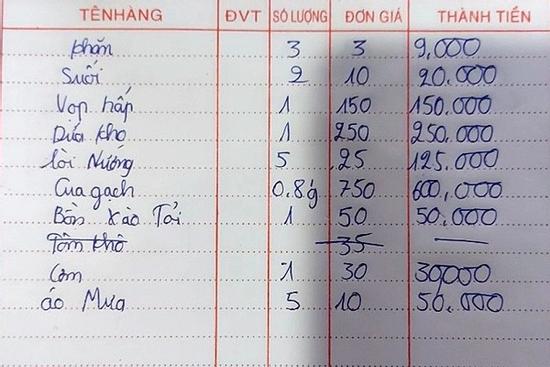 TÊN HÀNG ĐVT SỐ LƯỢNG ĐƠN GIÁ THÀNH TIỀN
khăn 3 3 9,000
Suối 2 10 20.000
Vọp hấp 1 150 150.000
Dứa kho 1 250 250.000
lời Nướng 5 25 125.000
Cua gạch 0.8 750 600,000
Bồn xào Tỏi 1 50 50.000
Tôm khô 35
Cơm 1 30 30,000
áo Mưa 5 10 50.000